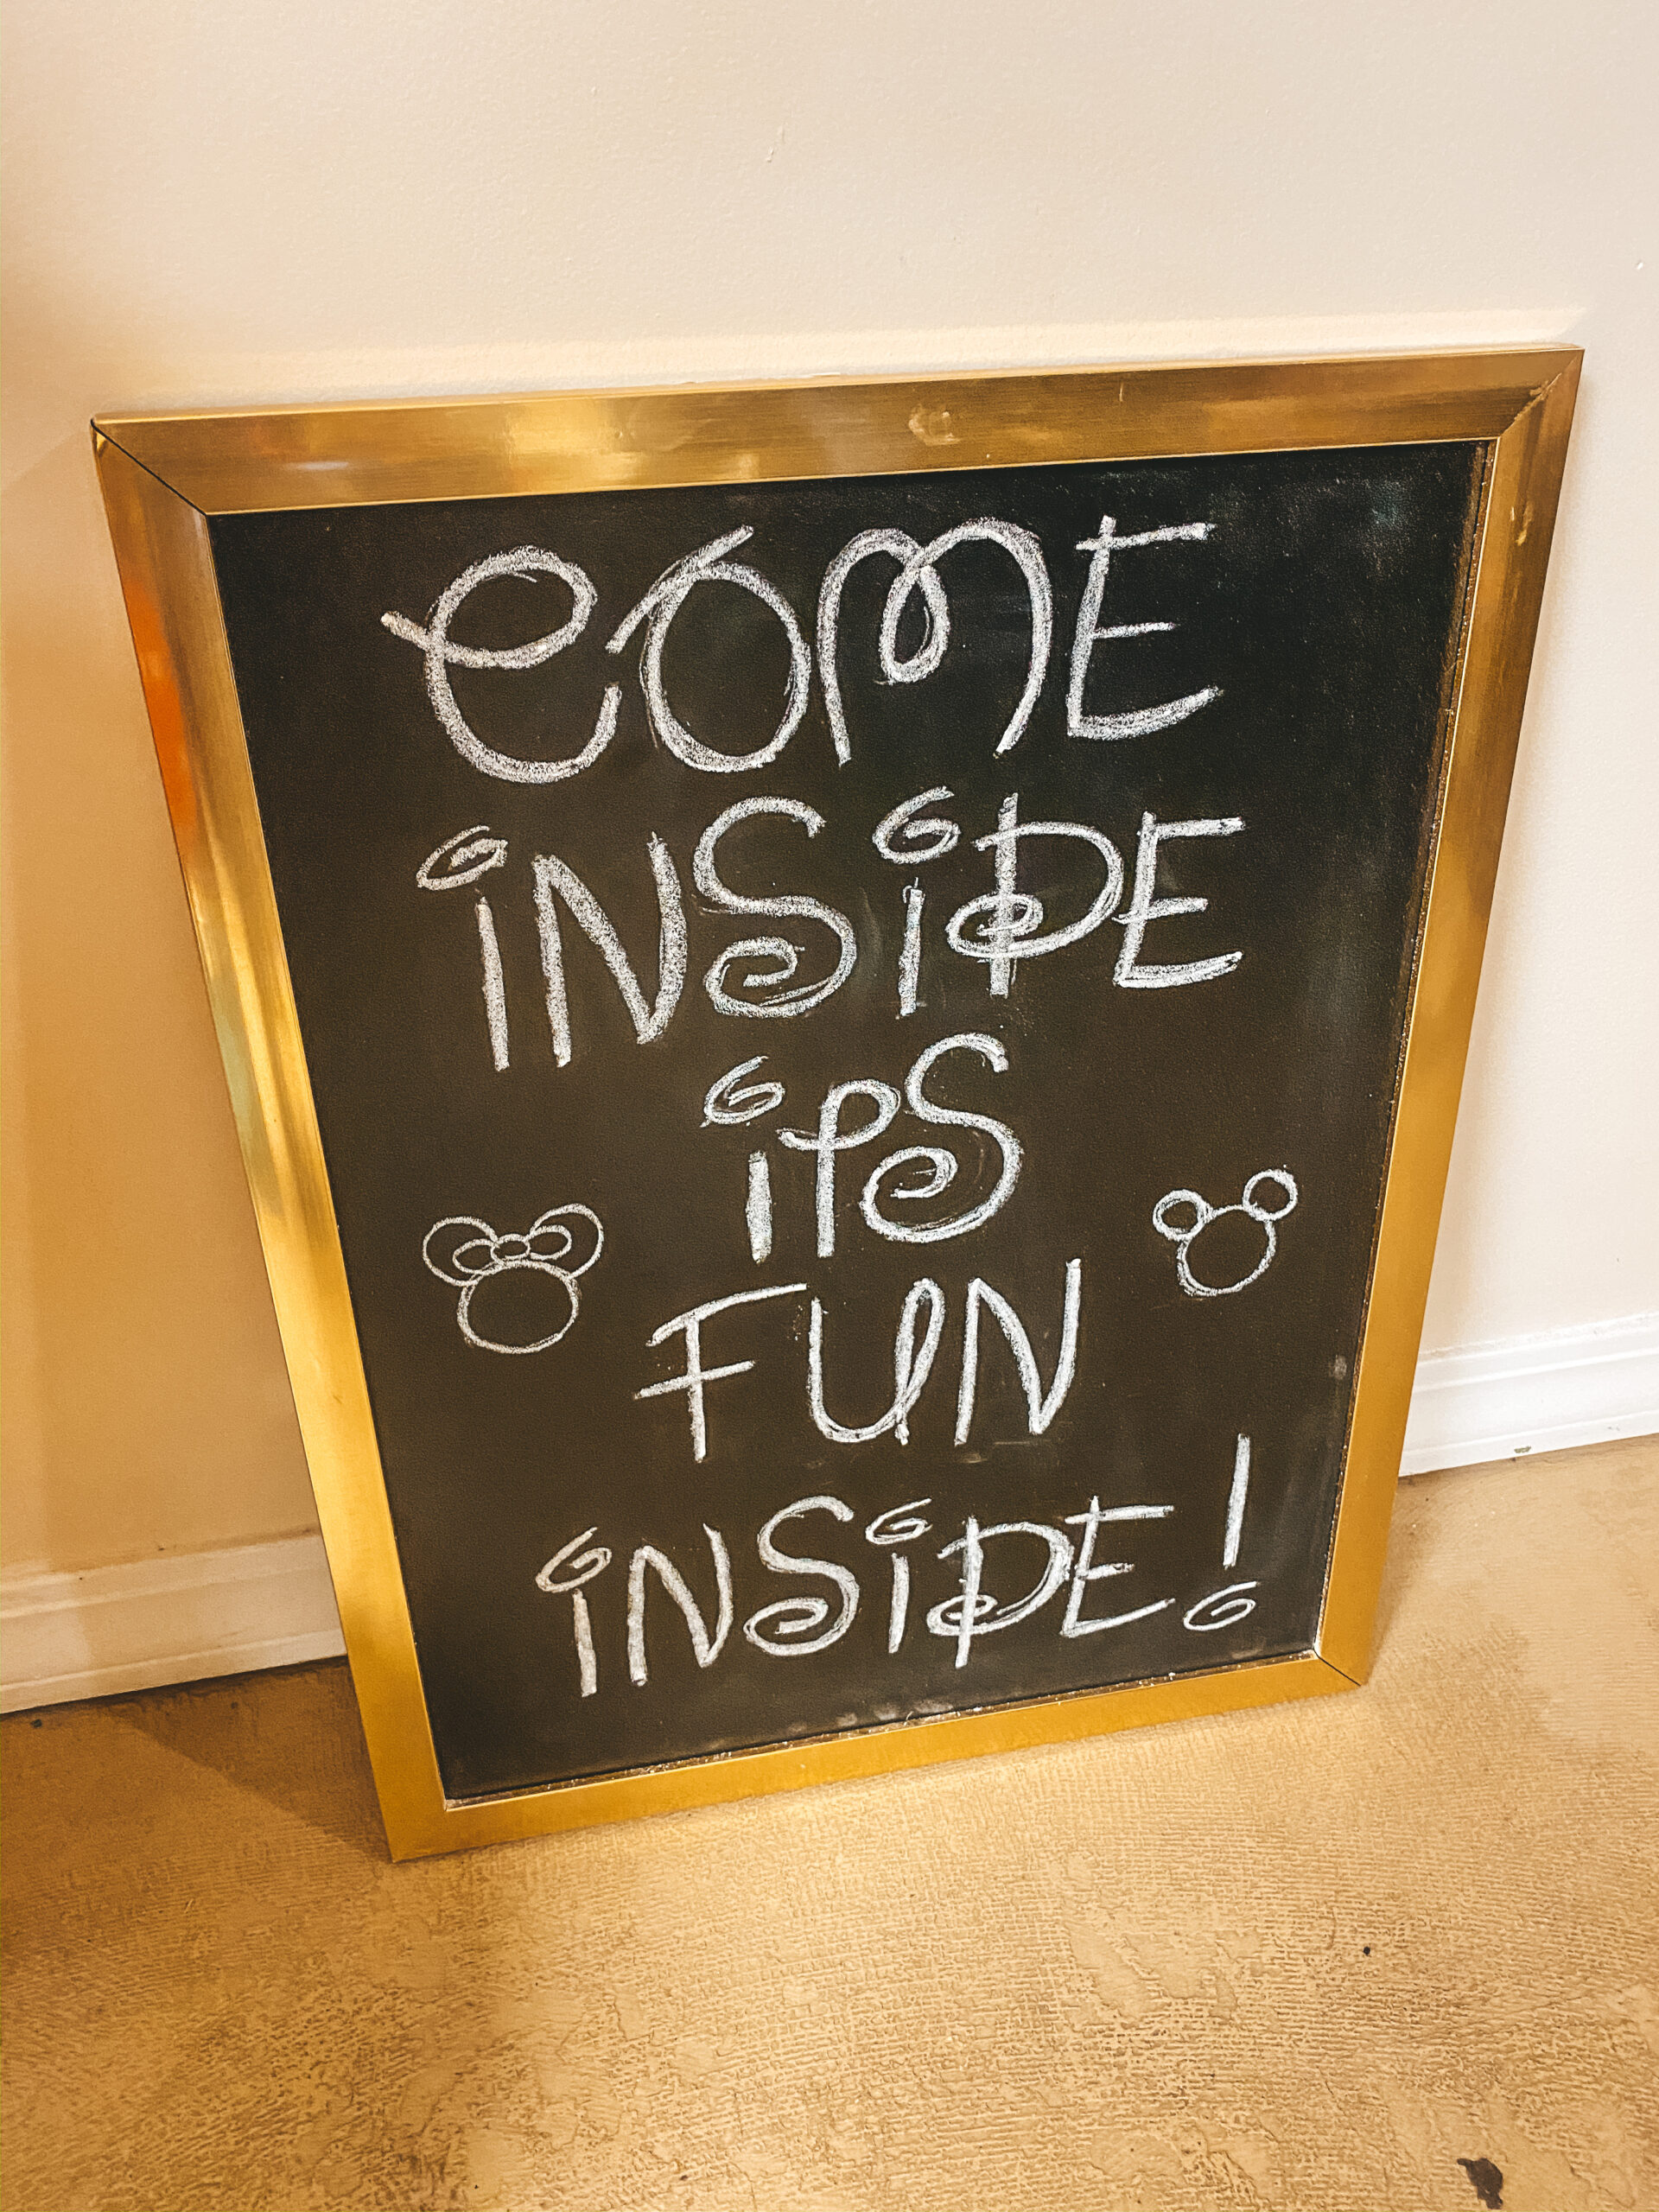 COME
iNSiDE
iTS
FUN
iNSiDE!